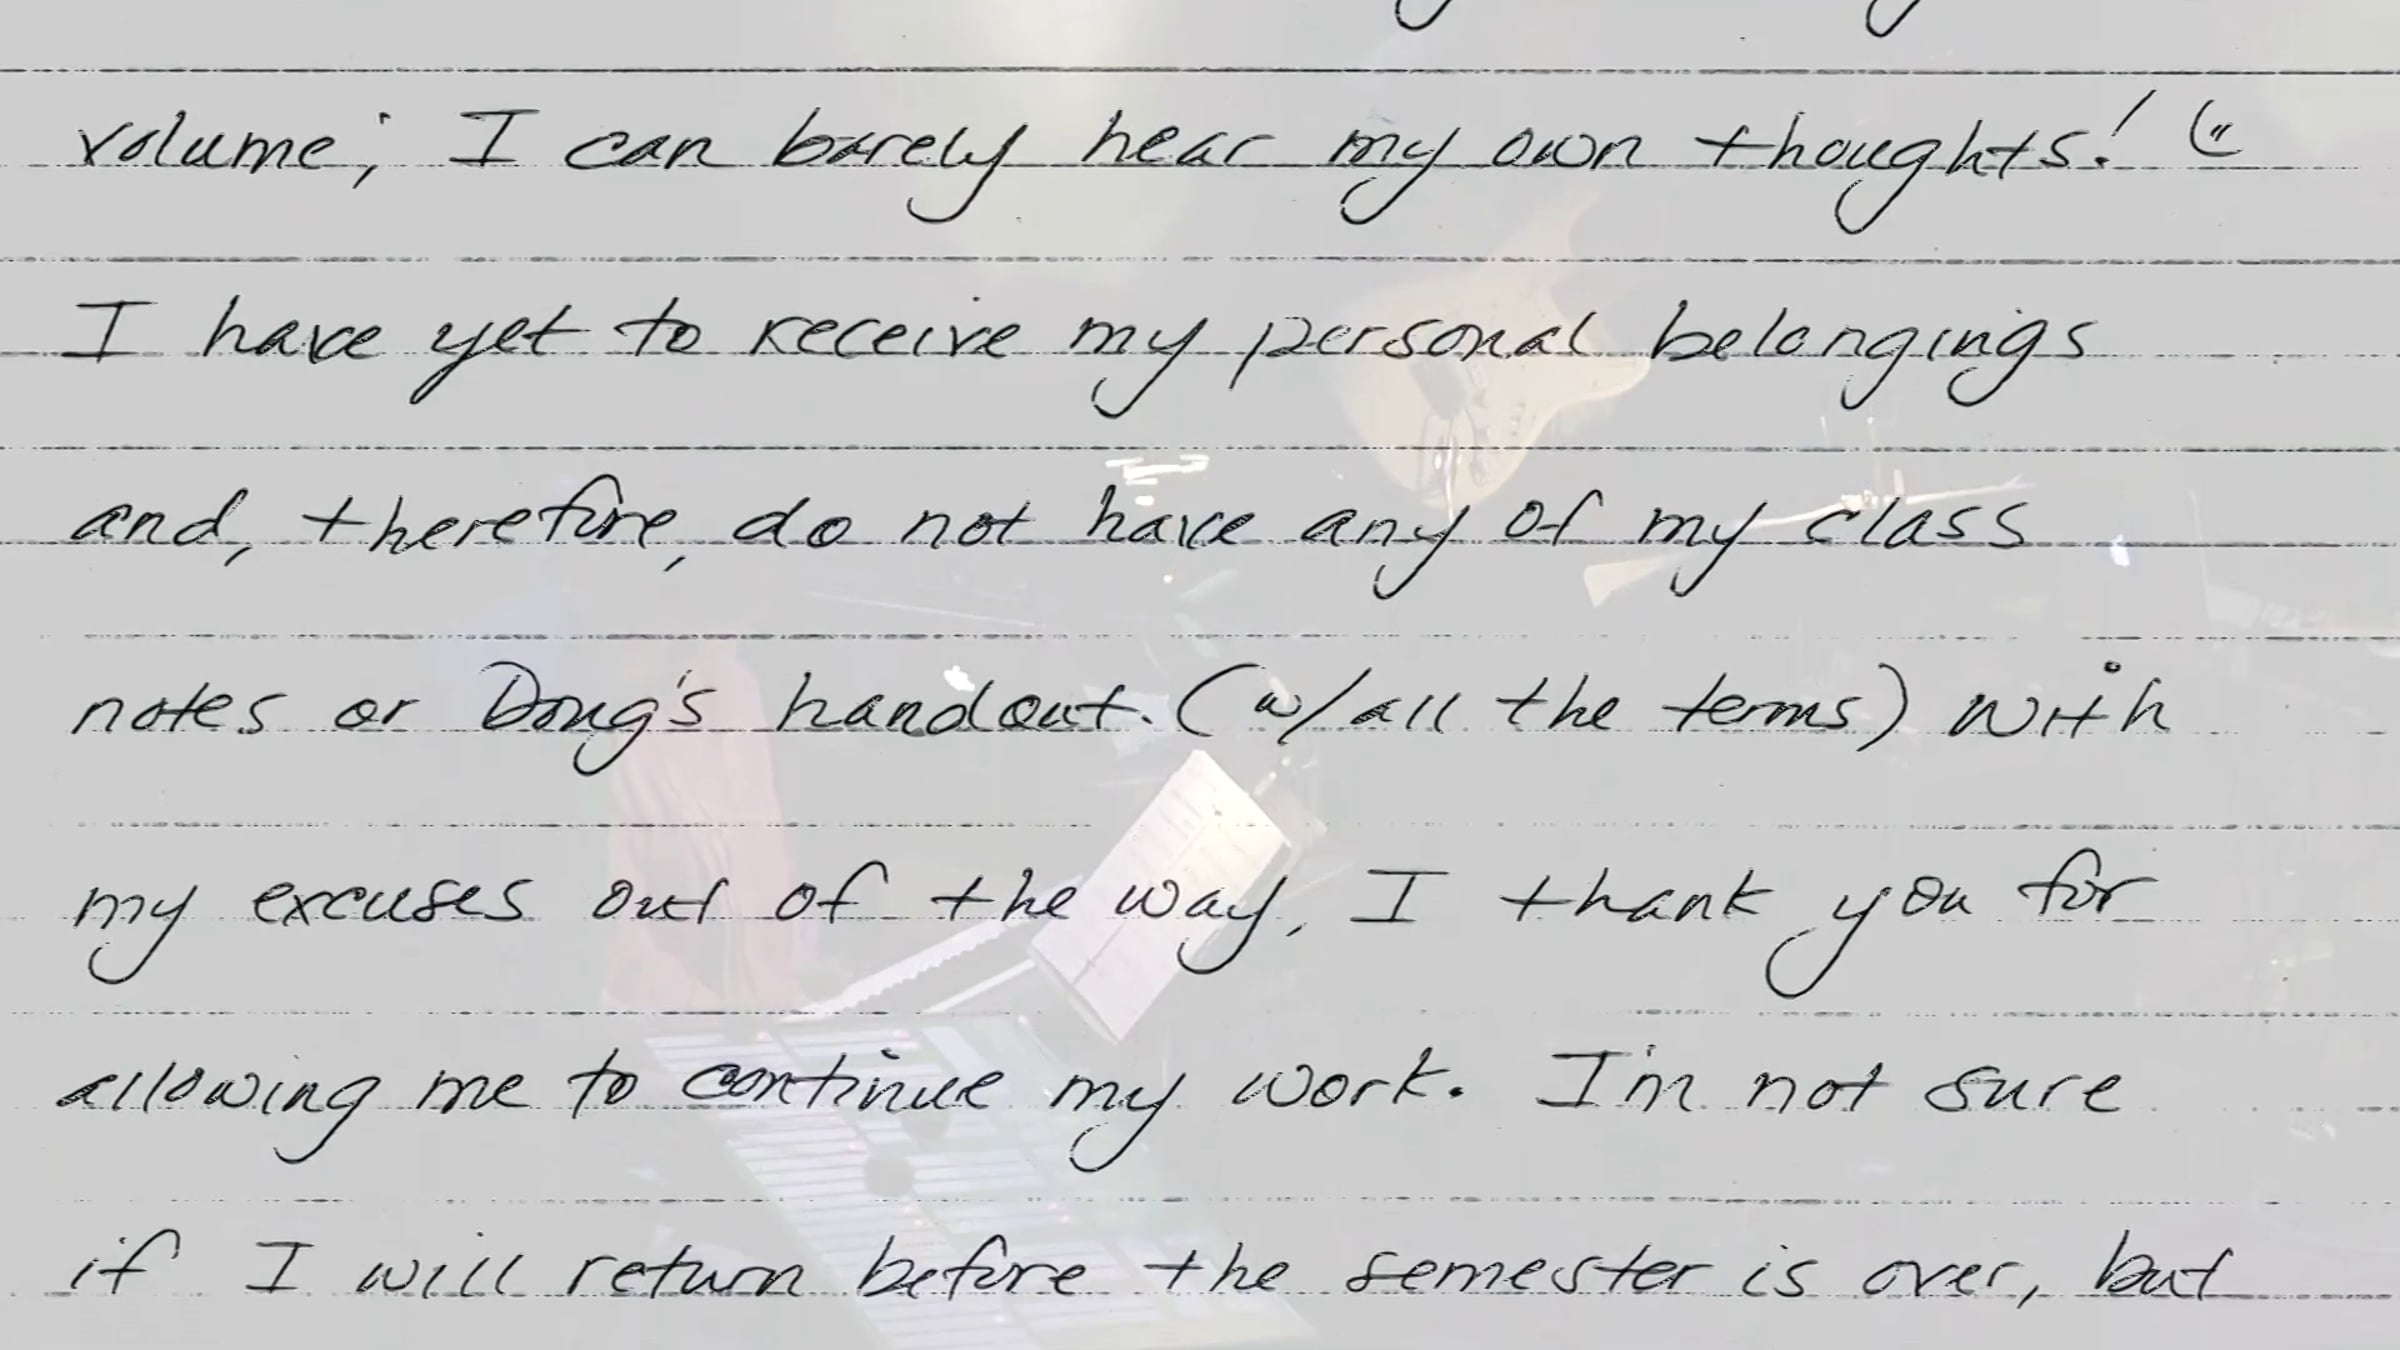 volume; I can barely hear my own thoughts! (:
I have yet to receive my personal belongings
and, therefore, do not have any of my class
notes or Doug's handout. (w/all the terms) With
my excuses out of the way, I thank you for
allowing me to continue my work. I'm not sure
if I will return before the semester is over, but